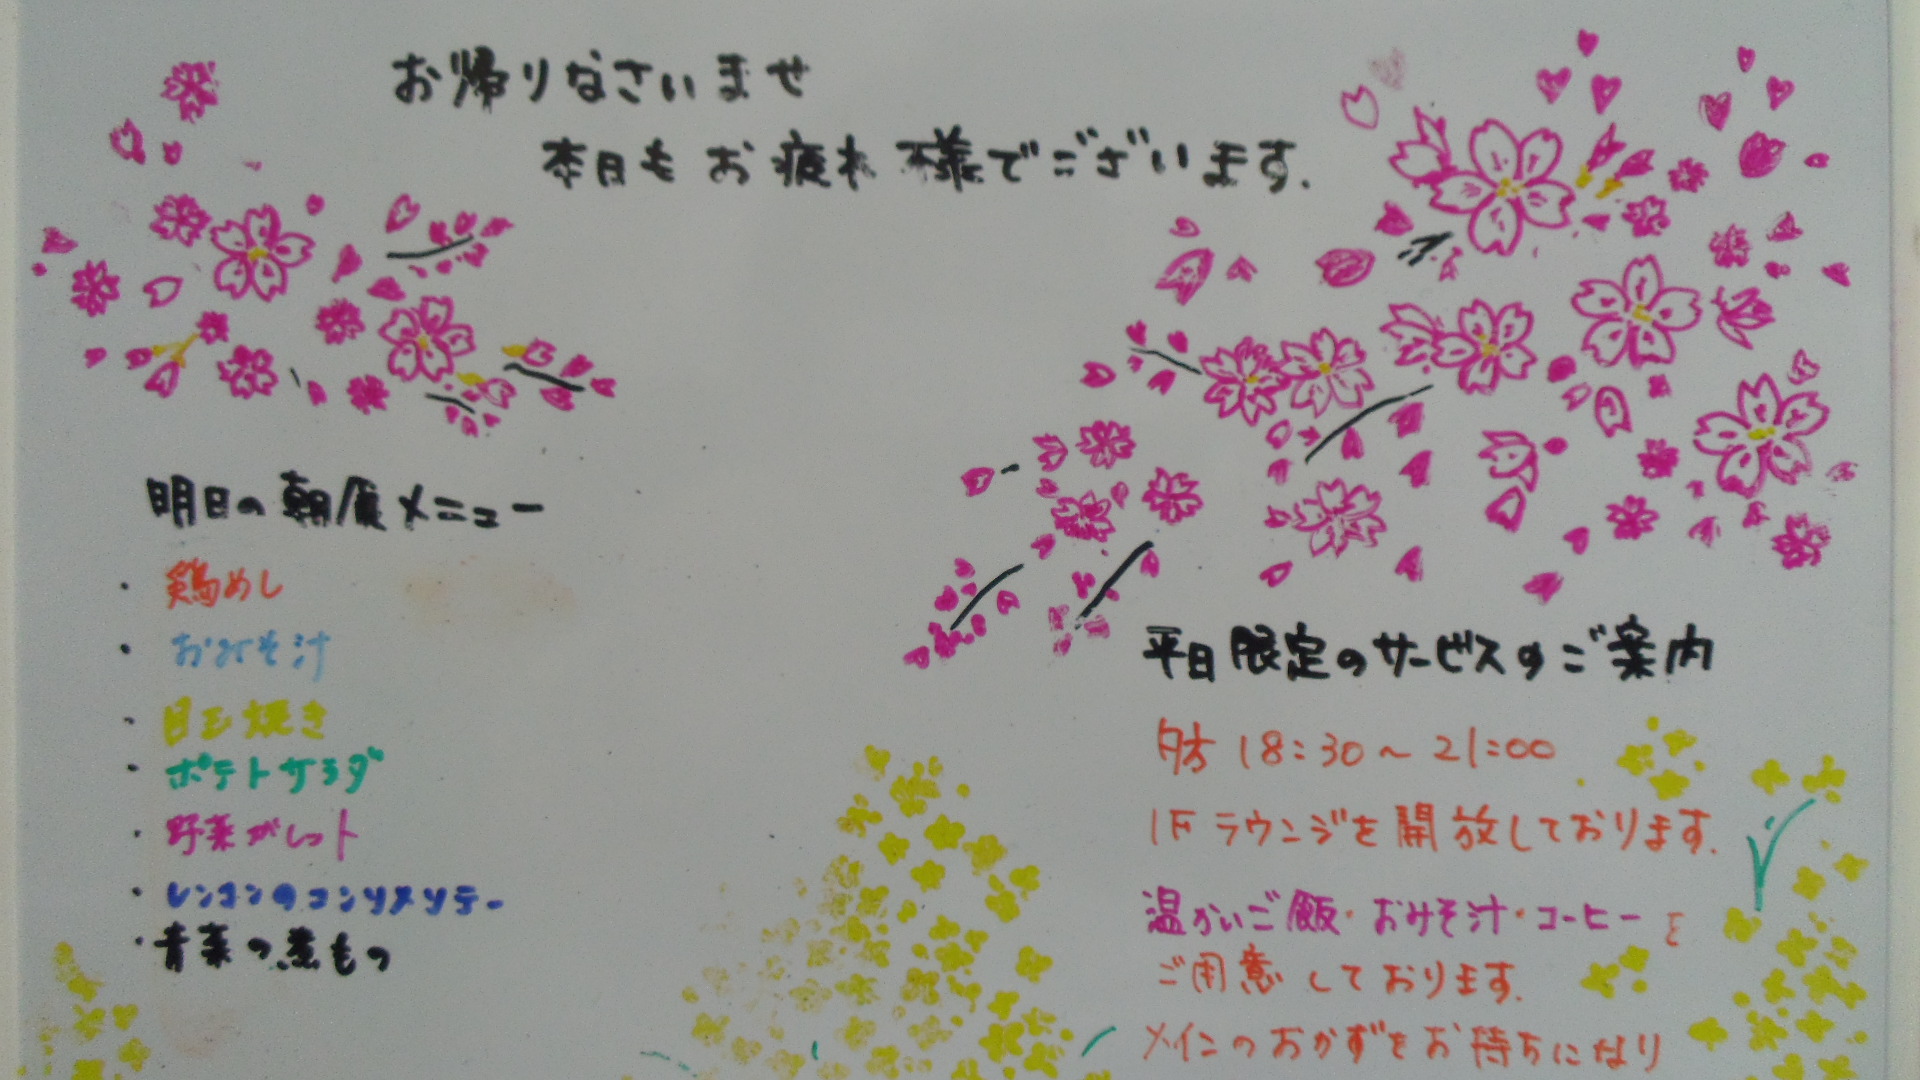 お帰りなさいませ
本日もお疲れ様でございます.
明日の朝食メニュー
・鶏めし
・おみそ汁
・目玉焼き
・ポテトサラダ
・野菜ガレット
・レンコンのコンソメソテー
・青菜の煮もの
平日限定のサービスのご案内
夕方 18:30～21:00
1Fラウンジを開放しております.
温かいご飯・おみそ汁・コーヒーを
ご用意しております.
メインのおかずをお持ちになり